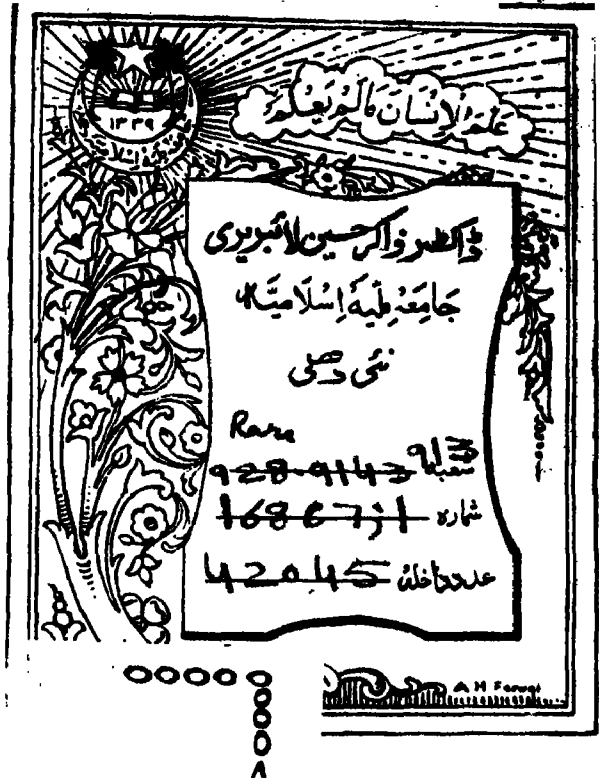 عَلَّمَ الْإِنْسَانَ مَا لَمْ يَعْلَمْ
۱۳۳۹
ڈاکٹر ذاکر حسین لائبریری
جَامِعَہ مِلّیَہ اِسْلَامِیَّہ
نئی دھلی
Rare
شعبہ 928.9143
شمارہ 168
عددداخلہ 42045
A M Faruqi